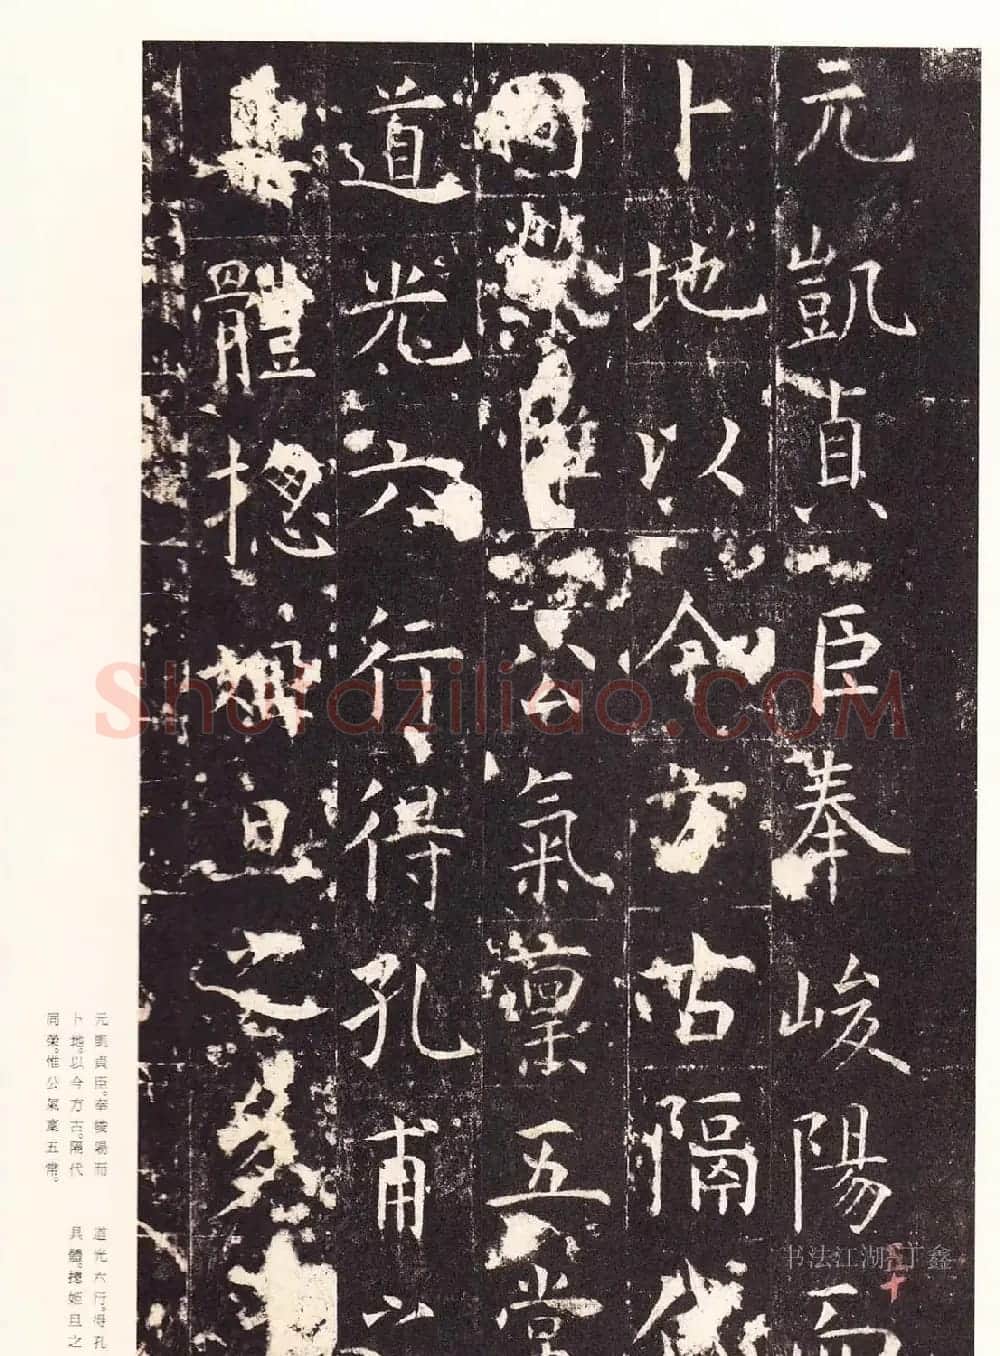 元凱貞臣奉峻陽而
卜地以令方古隔代
同榮惟公氣稟五常
道光六行得孔甫
具體揔姬旦之多
元凱貞臣。奉陵陽而
卜地。以今方古。隔代
同榮。惟公氣稟五常。
道光六行。得孔
具體。揔姬旦之
Shufaziliao.COM
书法江湖 丁鑫